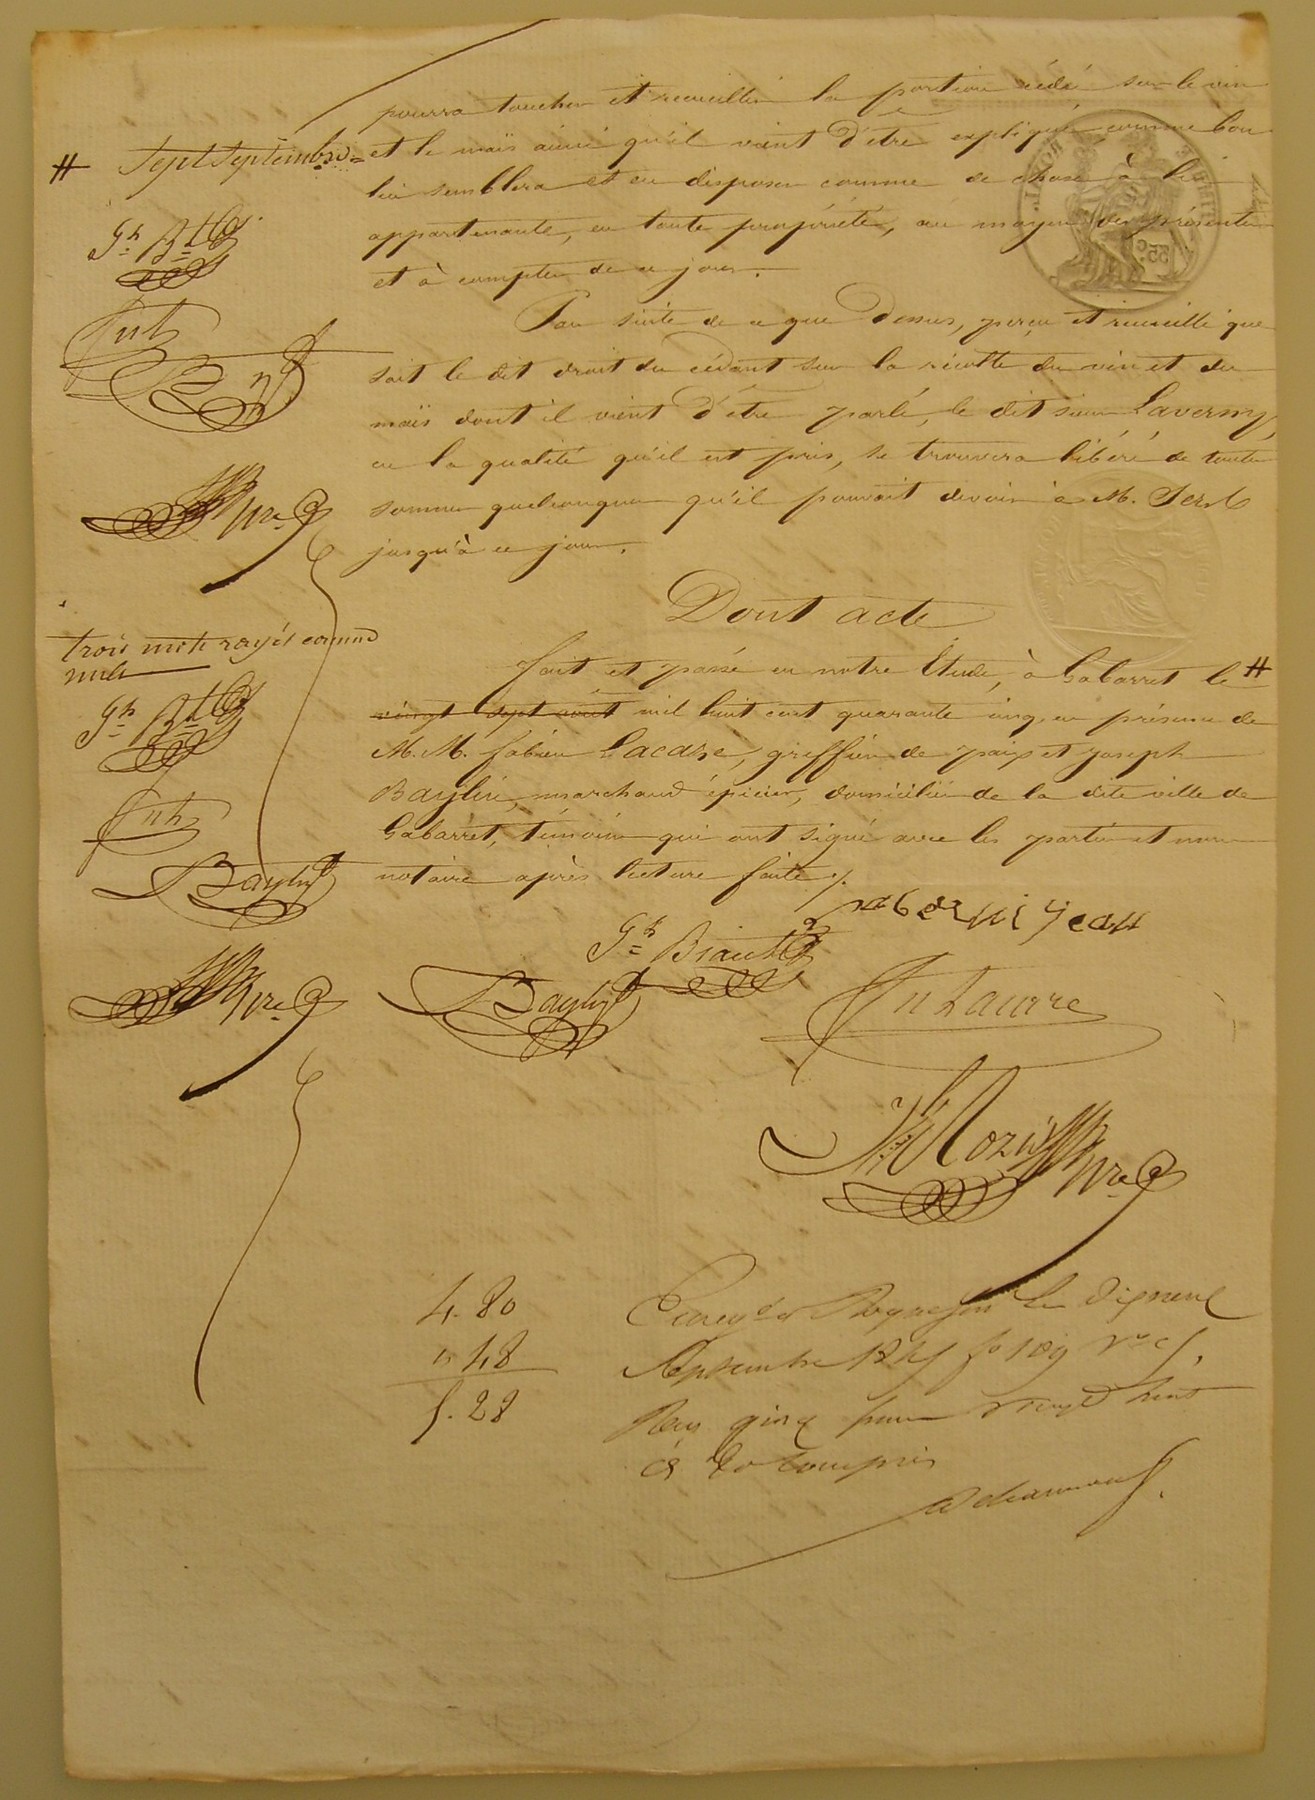 pourra toucher et recueillir la portion cédée sur le vin
# sept septembre
et le maïs ainsi qu'il vient d'être expliqué, comme bon
lui semblera et en disposer comme de chose à lui
appartenante, en toute propriété, au moyen des présentes
et à compter de ce jour.
Par suite de ce que dessus, perçu et recueilli que
soit le dit droit du cédant sur la récolte du vin et du
maïs dont il vient d'être parlé, le dit sieur Laverny,
en la qualité qu'il est pris, se trouvera libéré de toute
somme quelconque qu'il pouvait devoir à M.
jusqu'à ce jour.
Dont acte
trois mots rayés comme
nuls
fait et passé en notre Etude, à Gabarret le #
vingt sept août mil huit cent quarante cinq, en présence de
M.M. fabien Lacaze, greffier de paix et joseph
Baylin, marchand épicier, domiciliés de la dite ville de
Gabarret, témoins qui ont signé avec les parties et nous
notaire après lecture faite ./.
jean
Gh
Nre
4. 80
" 48
5. 28
septembre 1845 fo 189 Vo
Reçu cinq francs vingt huit
compris